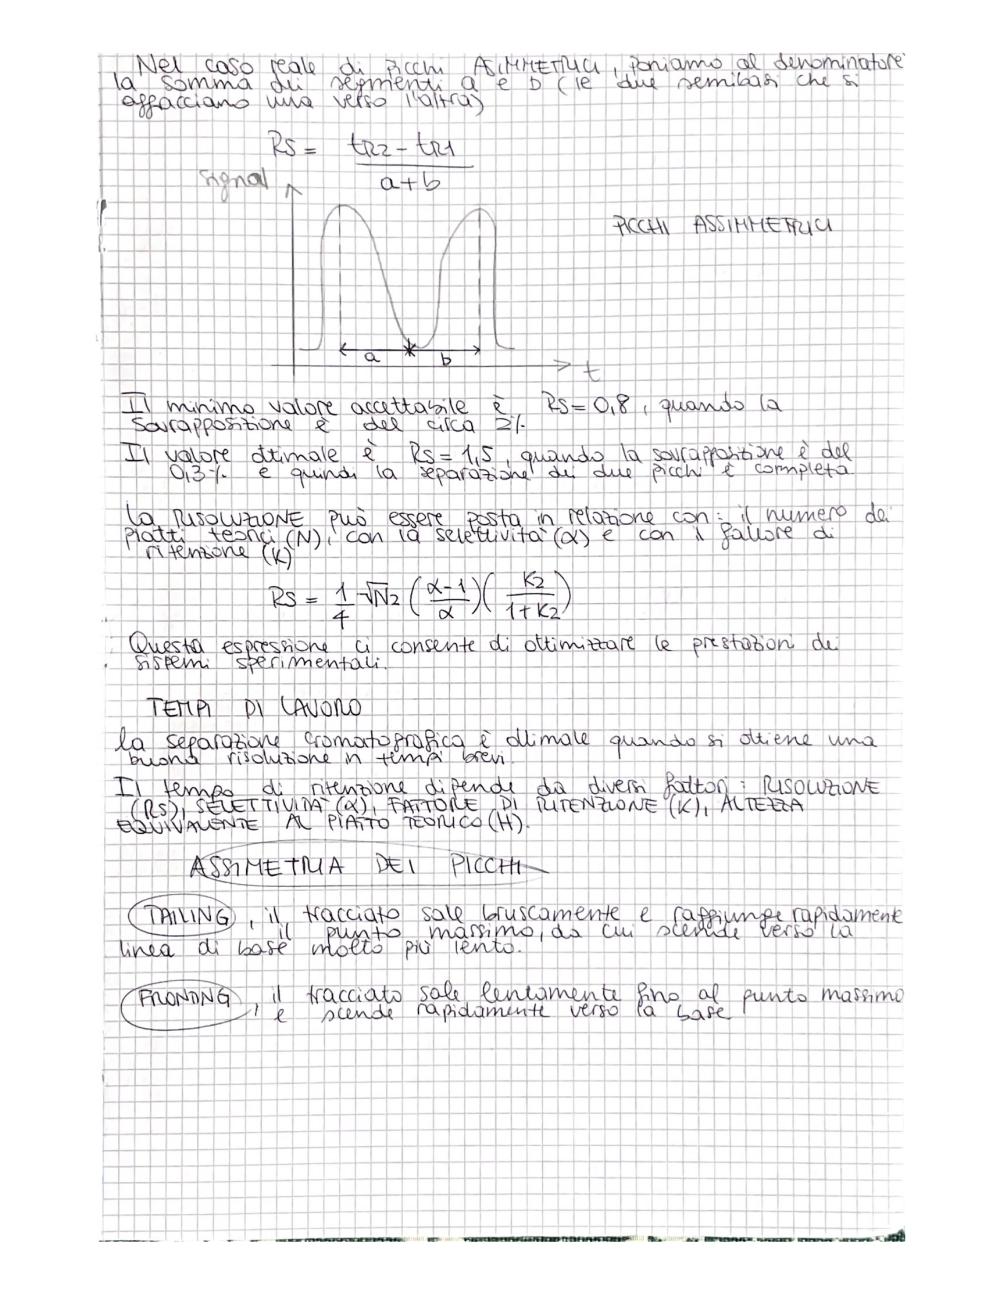 Nel caso reale di picchi ASIMMETRICI, poniamo al denominatore
la somma dei segmenti a e b (le due semibasi che si
affacciano una verso l'altra)
Rs = tR2 - tR1
a+b
signal
PICCHI ASSIMMETRICI
a b
t
Il minimo valore accettabile è Rs = 0,8, quando la
sovrapposizione è del circa 2%
Il valore ottimale è Rs = 1,5, quando la sovrapposizione è del
0,3% e quindi la separazione dei due picchi è completa
La RISOLUZIONE può essere posta in relazione con: il numero dei
piatti teorici (N), con la selettività (α) e con il fattore di
ritenzione (K)
Rs = 1/4 √N2 (α-1/α) (K2/1+K2)
Questa espressione ci consente di ottimizzare le prestazioni dei
sistemi sperimentali.
TEMPI DI LAVORO
la separazione cromatografica è ottimale quando si ottiene una
buona risoluzione in tempi brevi.
Il tempo di ritenzione dipende da diversi fattori: RISOLUZIONE
(Rs), SELETTIVITÀ (α), FATTORE DI RITENZIONE (K), ALTEZZA
EQUIVALENTE AL PIATTO TEORICO (H).
ASSIMETRIA DEI PICCHI
TAILING, il tracciato sale bruscamente e raggiunge rapidamente
il punto massimo, da cui scende verso la
linea di base molto più lento.
FRONTING, il tracciato sale lentamente fino al punto massimo
e scende rapidamente verso la base